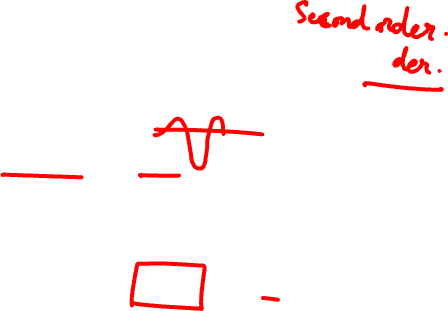 Second order.
der.